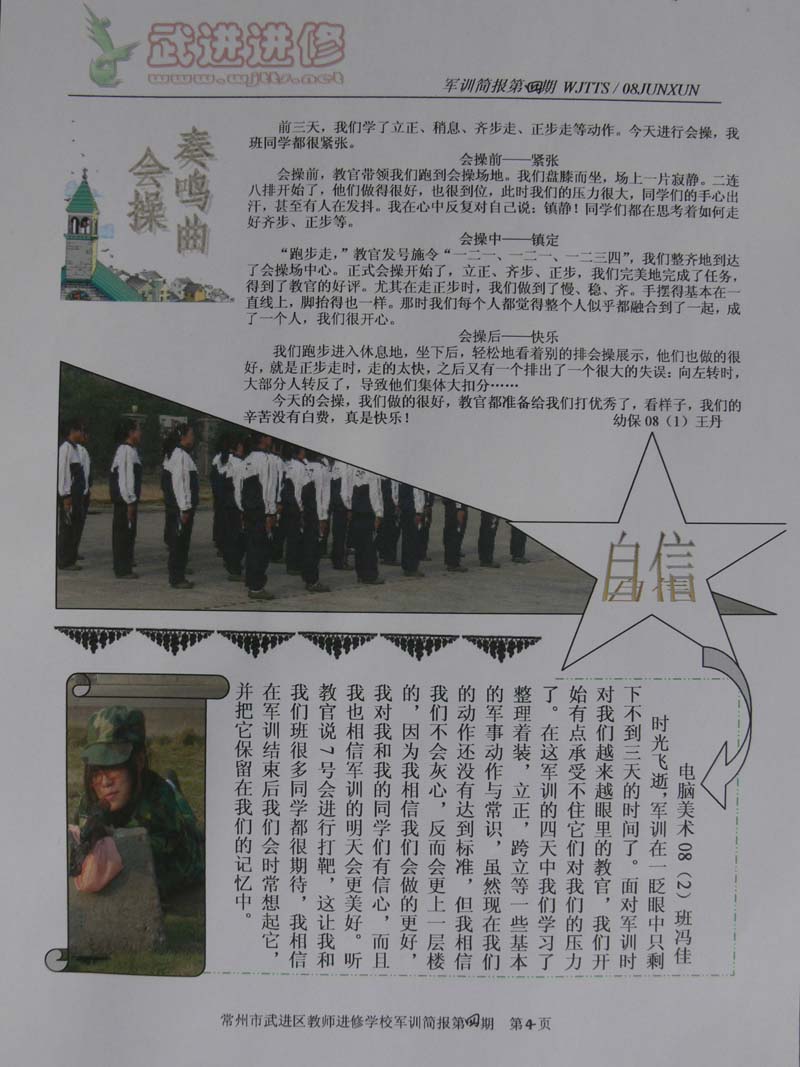 武进进修
www.wjtts.net
军训简报第四期 WJTTS / 08JUNXUN
会操
奏鸣曲
前三天，我们学了立正、稍息、齐步走、正步走等动作。今天进行会操，我
班同学都很紧张。
会操前——紧张
会操前，教官带领我们跑到会操场地。我们盘膝而坐，场上一片寂静。二连
八排开始了，他们做得很好，也很到位，此时我们的压力很大，同学们的手心出
汗，甚至有人在发抖。我在心中反复对自己说：镇静！同学们都在思考着如何走
好齐步、正步等。
会操中——镇定
“跑步走，”教官发号施令“一二一、一二一、一二三四”，我们整齐地到达
了会操场中心。正式会操开始了，立正、齐步、正步，我们完美地完成了任务，
得到了教官的好评。尤其在走正步时，我们做到了慢、稳、齐。手摆得基本在一
直线上，脚抬得也一样。那时我们每个人都觉得整个人似乎都融合到了一起，成
了一个人，我们很开心。
会操后——快乐
我们跑步进入休息地，坐下后，轻松地看着别的排会操展示，他们也做的很
好，就是正步走时，走的太快，之后又有一个排出了一个很大的失误：向左转时，
大部分人转反了，导致他们集体大扣分……
今天的会操，我们做的很好，教官都准备给我们打优秀了，看样子，我们的
辛苦没有白费，真是快乐！
幼保 08（1）王丹
自信
电脑美术 08（2）班冯佳
时光飞逝，军训在一眨眼中只剩
下不到三天的时间了。面对军训时
对我们越来越眼里的教官，我们开
始有点承受不住它们对我们的压力
了。在这军训的四天中我们学习了
整理着装，立正，跨立等一些基本
的军事动作与常识，虽然现在我们
的动作还没有达到标准，但我相信
我们不会灰心，反而会更上一层楼
的，因为我相信我们会做的更好，
我对我和我的同学们有信心，而且
我也相信军训的明天会更美好。听
教官说 7 号会进行打靶，这让我和
我们班很多同学都很期待，我相信
在军训结束后我们会时常想起它，
并把它保留在我们的记忆中。
常州市武进区教师进修学校军训简报第四期 第4页